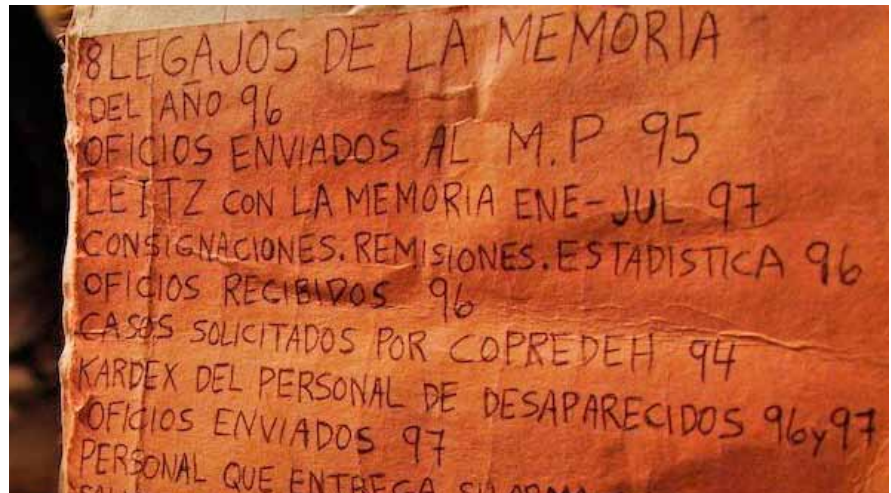 8 LEGAJOS DE LA MEMORIA
DEL AÑO 96
OFICIOS ENVIADOS AL M.P 95
LEITZ CON LA MEMORIA ENE-JUL 97
CONSIGNACIONES.REMISIONES.ESTADISTICA 96
OFICIOS RECIBIDOS 96
CASOS SOLICITADOS POR COPREDEH 94
KARDEX DEL PERSONAL DE DESAPARECIDOS 96 y 97
OFICIOS ENVIADOS 97
PERSONAL QUE ENTREGA SU ARMA